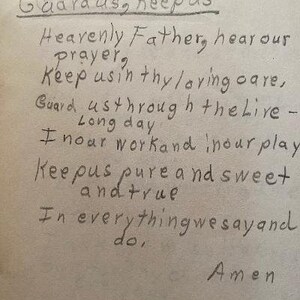 Guard us, Keep us
Heavenly Father, hear our
prayer,
Keep us in thy loving care,
Guard us through the Live-
Long day
In our work and in our play
Keep us pure and sweet
and true
In everything we say and
do.
Amen